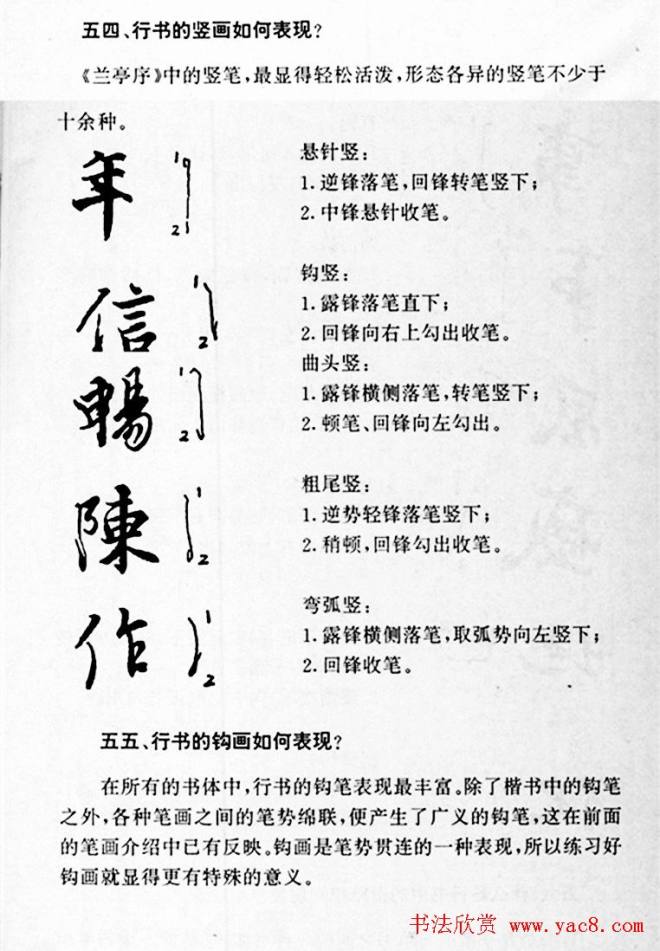 五四、行书的竖画如何表现?
《兰亭序》中的竖笔,最显得轻松活泼,形态各异的竖笔不少于
十余种。
年
1
2
悬针竖:
1.逆锋落笔,回锋转笔竖下;
2.中锋悬针收笔。
信
1
2
钩竖:
1.露锋落笔直下;
2.回锋向右上勾出收笔。
暢
1
2
曲头竖:
1.露锋横侧落笔,转笔竖下;
2.顿笔、回锋向左勾出。
陳
1
2
粗尾竖:
1.逆势轻锋落笔竖下;
2.稍顿,回锋勾出收笔。
作
1
2
弯弧竖:
1.露锋横侧落笔,取弧势向左竖下;
2.回锋收笔。
五五、行书的钩画如何表现?
在所有的书体中,行书的钩笔表现最丰富。除了楷书中的钩笔
之外,各种笔画之间的笔势绵联,便产生了广义的钩笔,这在前面
的笔画介绍中已有反映。钩画是笔势贯连的一种表现,所以练习好
钩画就显得更有特殊的意义。
书法欣赏 www.yac8.com